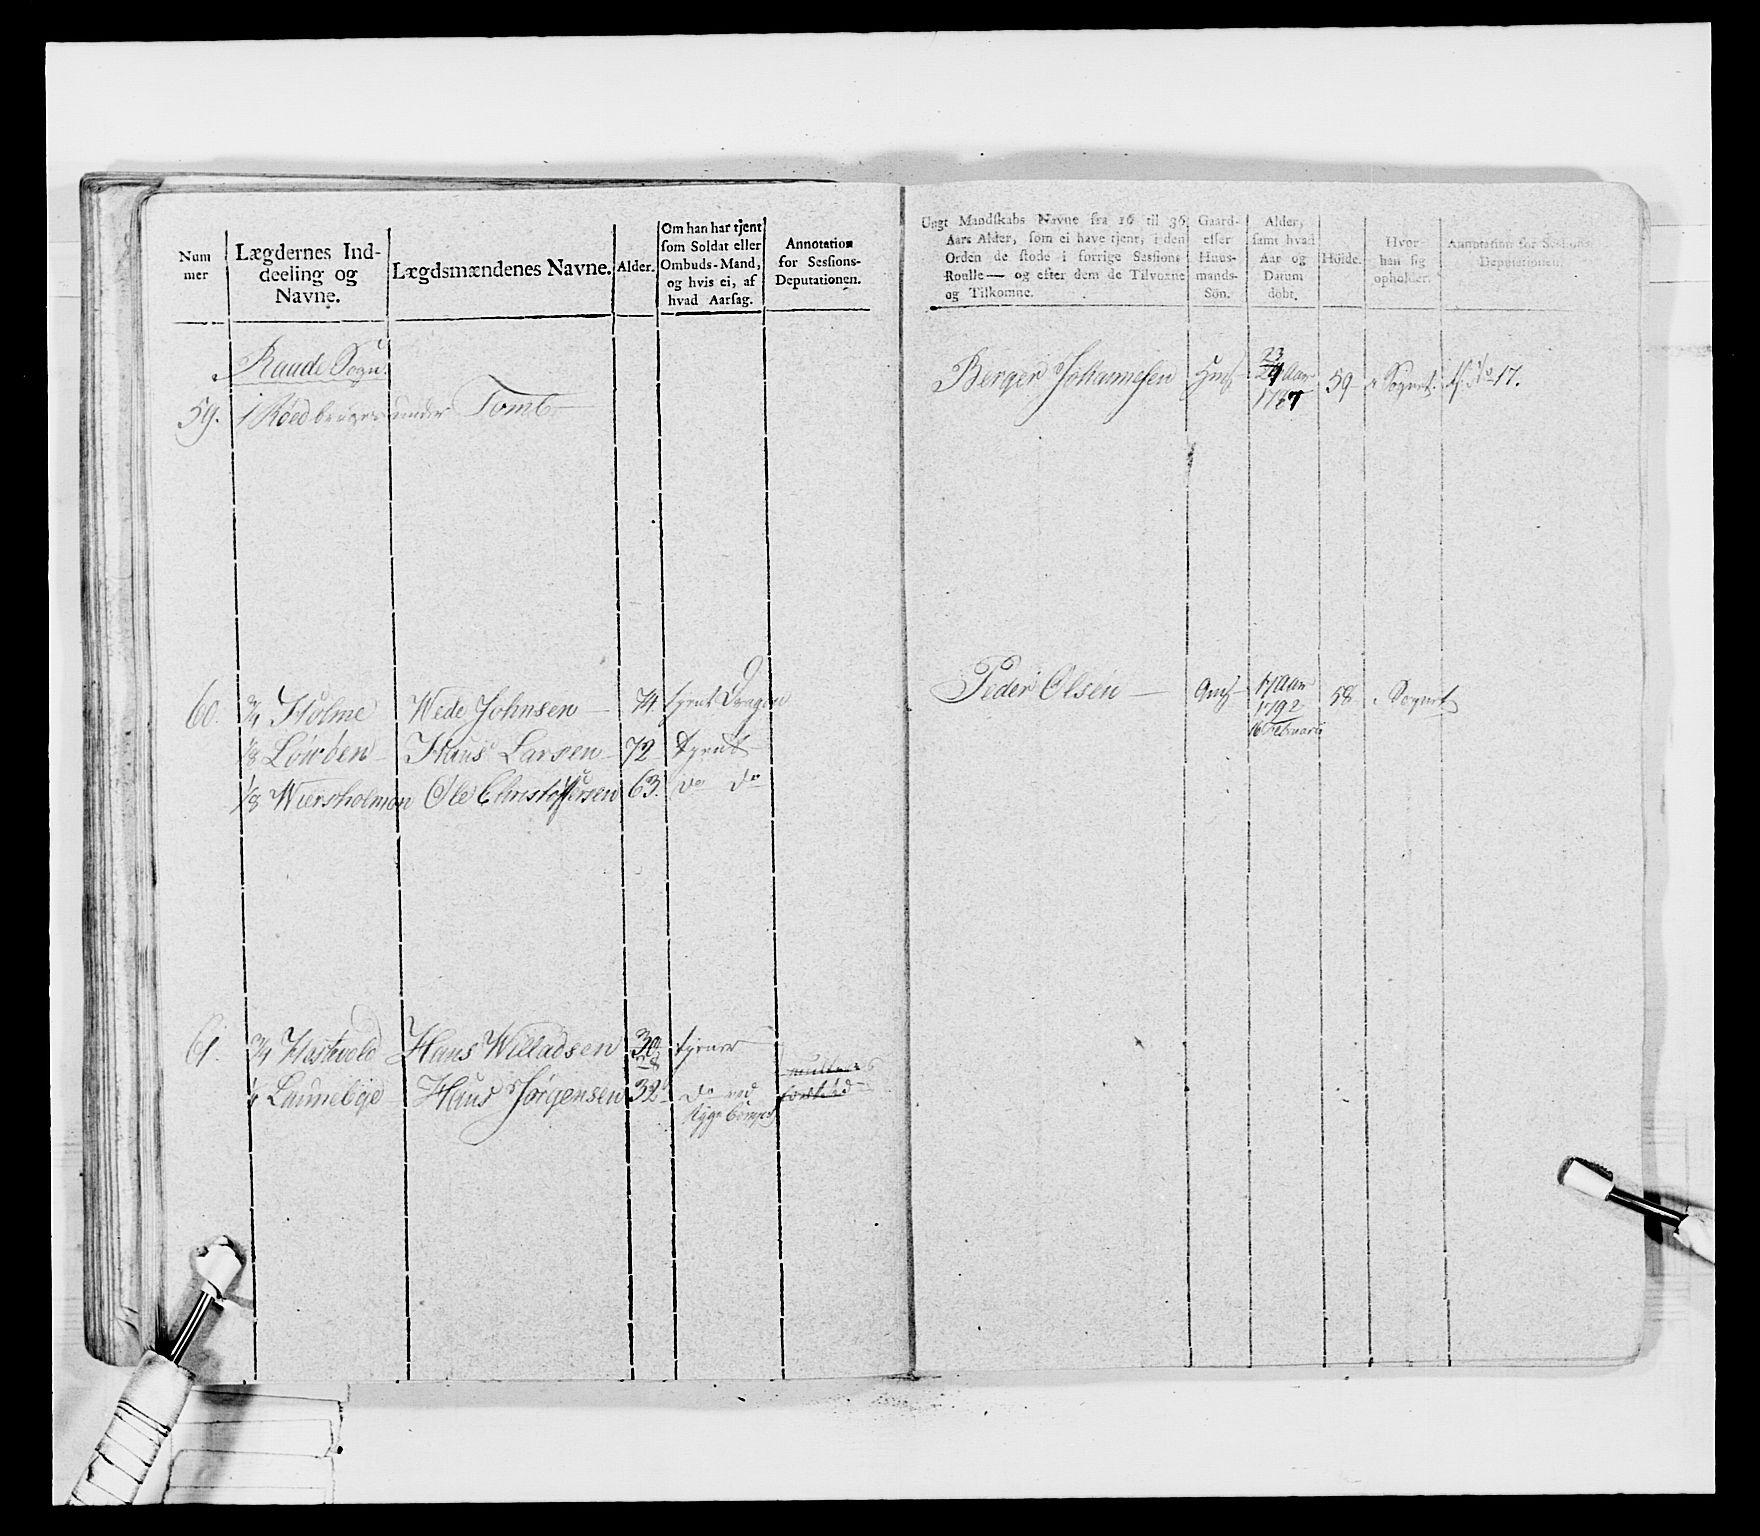 Num
mer
Lægdernes Ind-
deeling og
Navne.
Lægdsmændenes Navne.
Alder.
Om han har tjent
som Soldat eller
Ombuds-Mand,
og hvis ei, af
hvad Aarsag.
Annotation
for Sessions-
Deputationen.
Raade Sogn
59. 1 Röed bruges under Tomb
60. 3/4 Holme Wede Johnsen 74 tjent Dragon
1/8 Löwöen Hans Larsen 72 tjent
1/8 Wiersholmen Ole Christophersen 63. do do
61. 3/4 Hastvold Hans Willadsen 30 tjener
28
1/4 Lannebye Hans Jörgensen 32 do ved
Ungt Mandskabs Navne fra 16 til 36
Aars Alder, som ei have tjent, i den
Orden de stode i forrige Sessions
Roulle — og efter dem de Tilvoxne
og Tilkomne.
Gaard-
eller
Huus-
mands-
Sön.
Alder,
samt hvad
Aar og
Datum
döbt.
Höide.
Hvor-
han sig
opholder.
Annotation for Sessions-
Deputationen.
23
Berger Johannesen 24 Aar 59 i Sognet No 17.
1787
Peder Olsen 17 Aar 58 i Sognet
1792
16 Februari